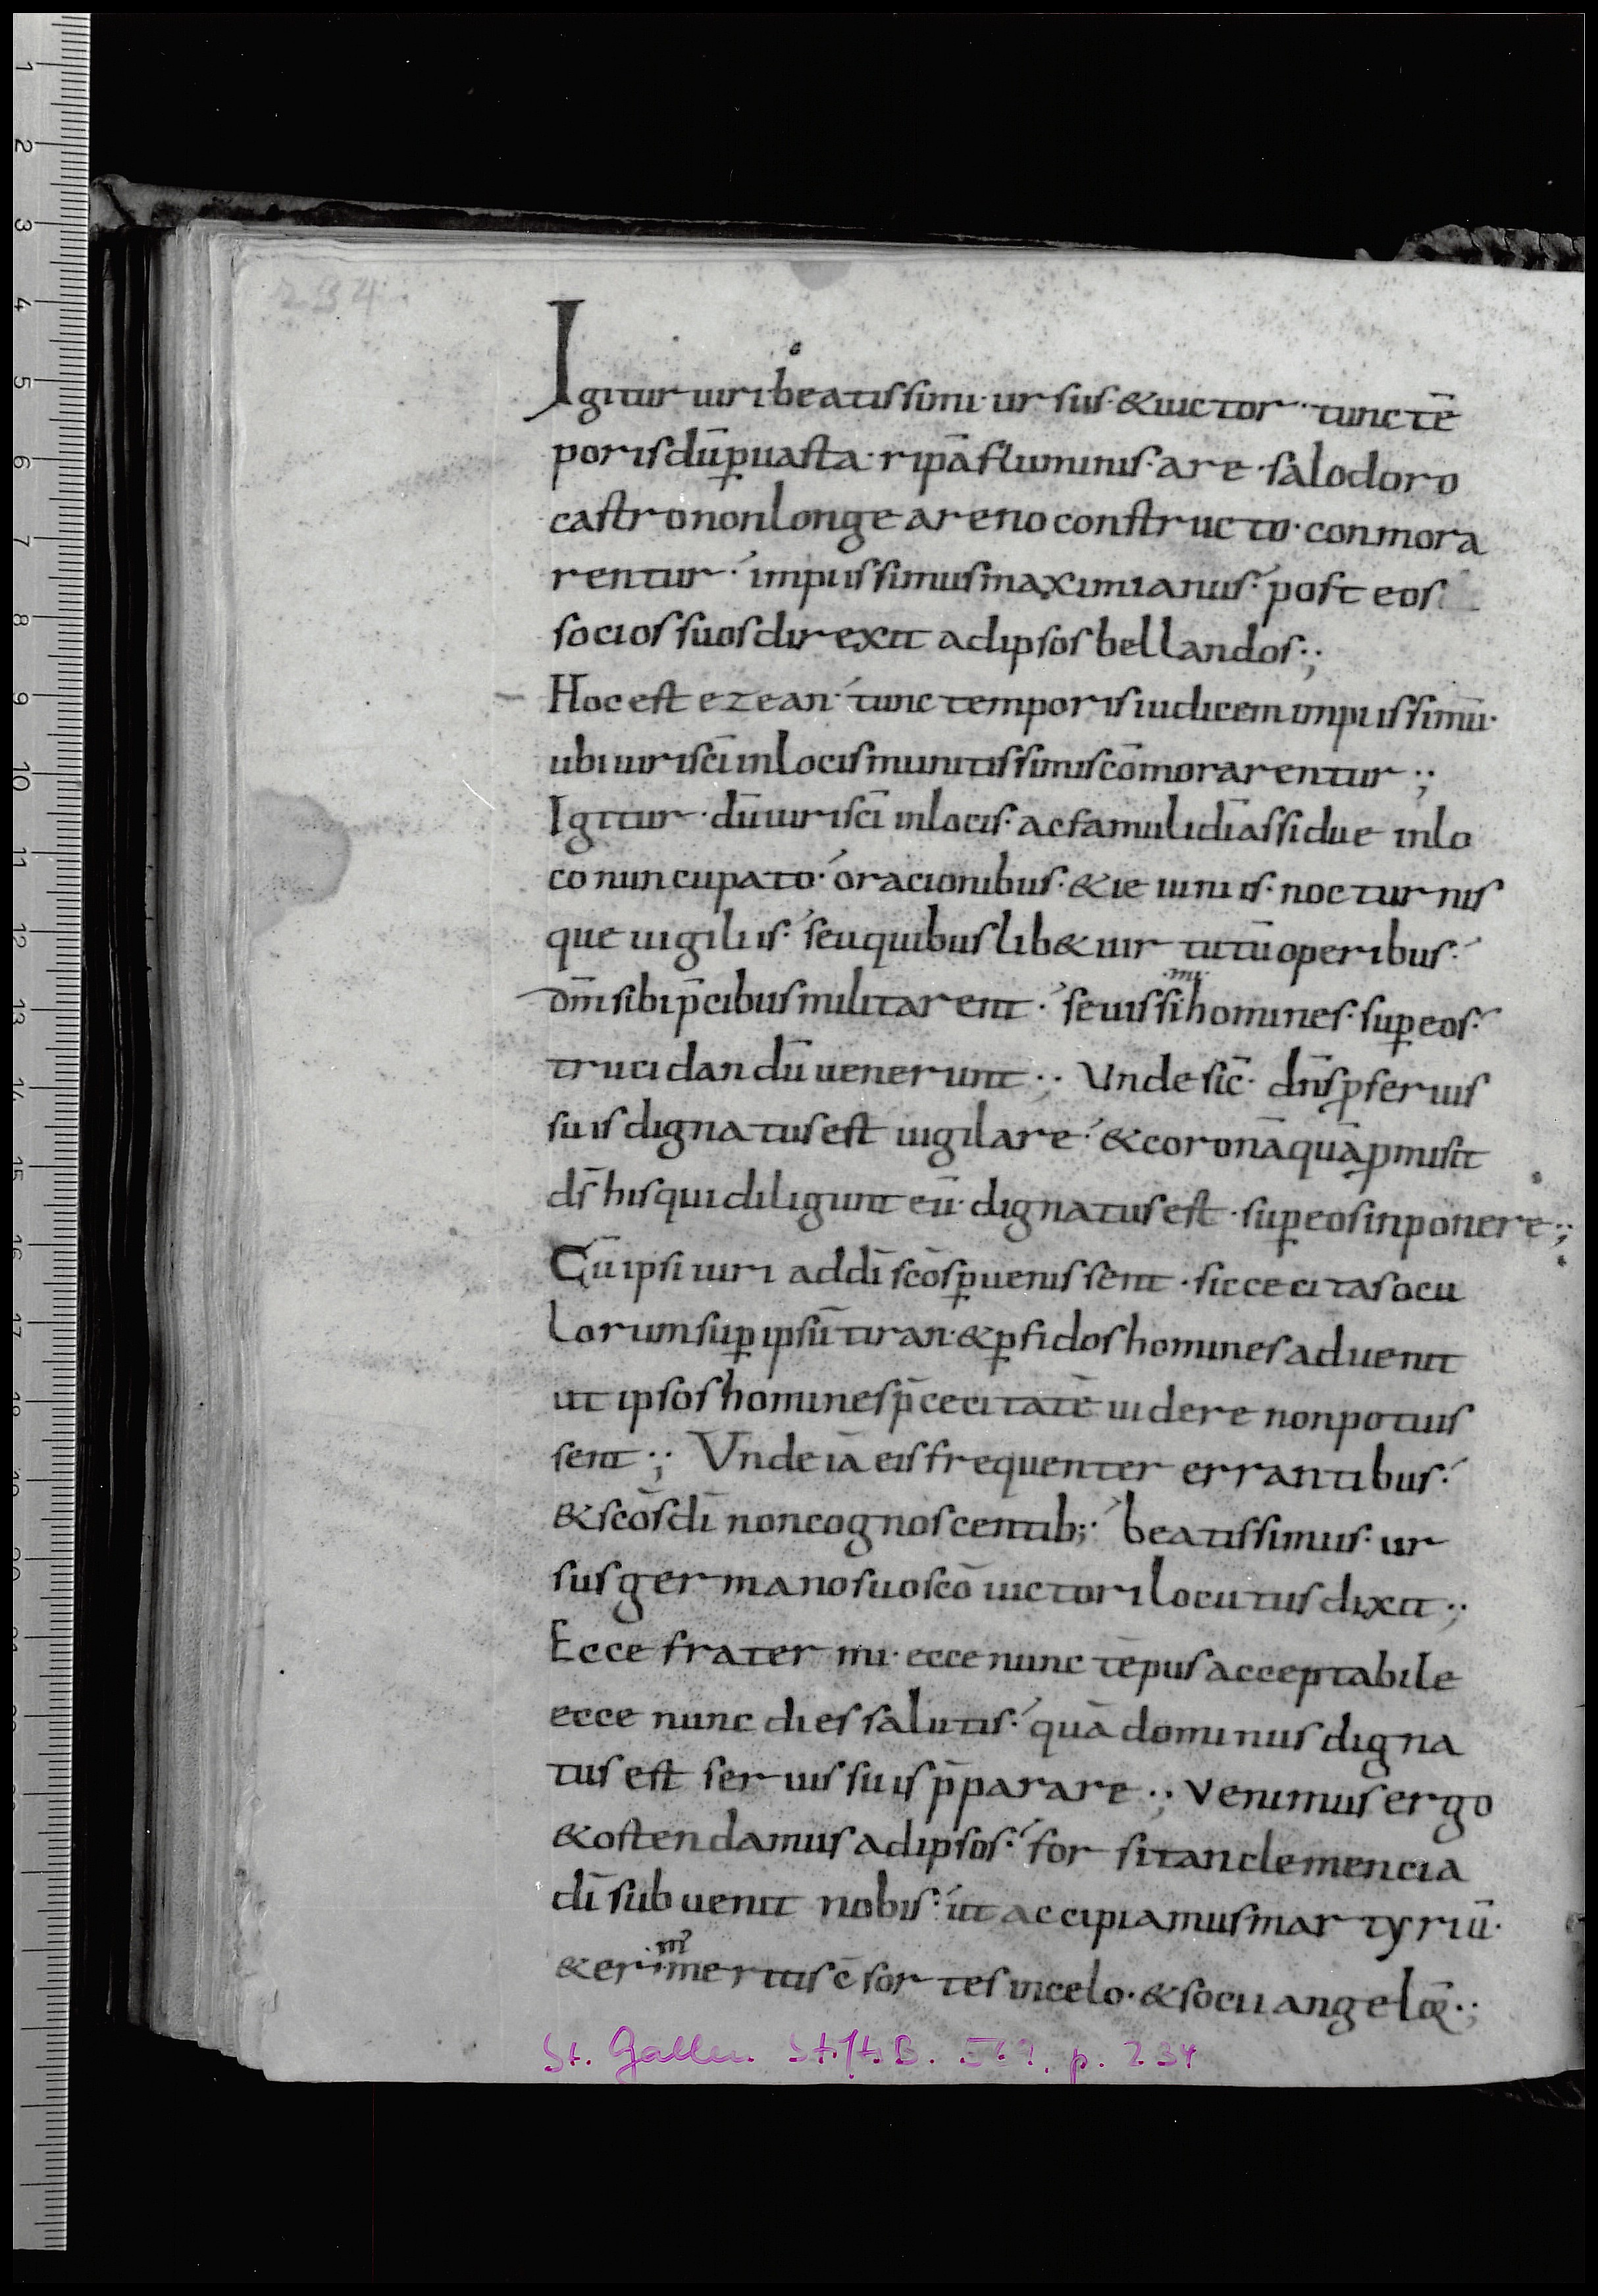 234
Igitur uiri beatissimi · ursus · & uictor · tunc tē
poris dū ꝑ uasta · ripā fluminis · are · salodoro
castro non longe a reno constructo · conmora
rentur · impiissimus maximianus · post eos
socios suos direxit ad ipsos bellandos ·;
Hoc est ezean · tunc temporis iudicem impiissimū ·
ubi uiri sc̄i in locis munitissimis cōmorarentur ·;
Igitur · dū uiri sc̄i in locis · ac famuli dī assidue in lo
co nuncupato · oracionibus · & ieiuniis · nocturnis
que uigiliis · seu quibuslib& uirtutū operibus ·
dn̄i sibi p̄cibus militarent · seuissi homines · suꝑ eos ·
mi
trucidandū uenerunt ·; Vnde sic̄ · dn̄s ꝓ seruis
suis dignatus est uigilare · & coronā quā ꝓmisit
ds̄ his qui diligunt eū · dignatus est · suꝑ eos inponere ·;
Cū ipsi uiri ad dī sc̄os ꝑuenissent · sic cecitas ocu
lorum suꝑ ipsū tiran · & ꝑfidos homines aduenit
ut ipsos homines p̄ cecitatē uidere non potuis
sent ·; Vnde iā eis frequenter errantibus ·
& sc̄os dī non cognoscentib; · beatissimus · ur
sus germano suo sc̄o uictori locutus dixit ·;
Ecce frater mi · ecce nunc tēpus acceptabile
ecce nunc dies salutis · quā dominus digna
tus est seruis suis p̄parare ·; Venimus ergo
& ostendamus ad ipsos · forsitan clemencia
dī subuenit nobis · ut accipiamus martyriū ·
& erim meritis c̄sortes in celo · & socii angeloꝝ ·;
m
St. Gallen StiftsB. 569, p. 234